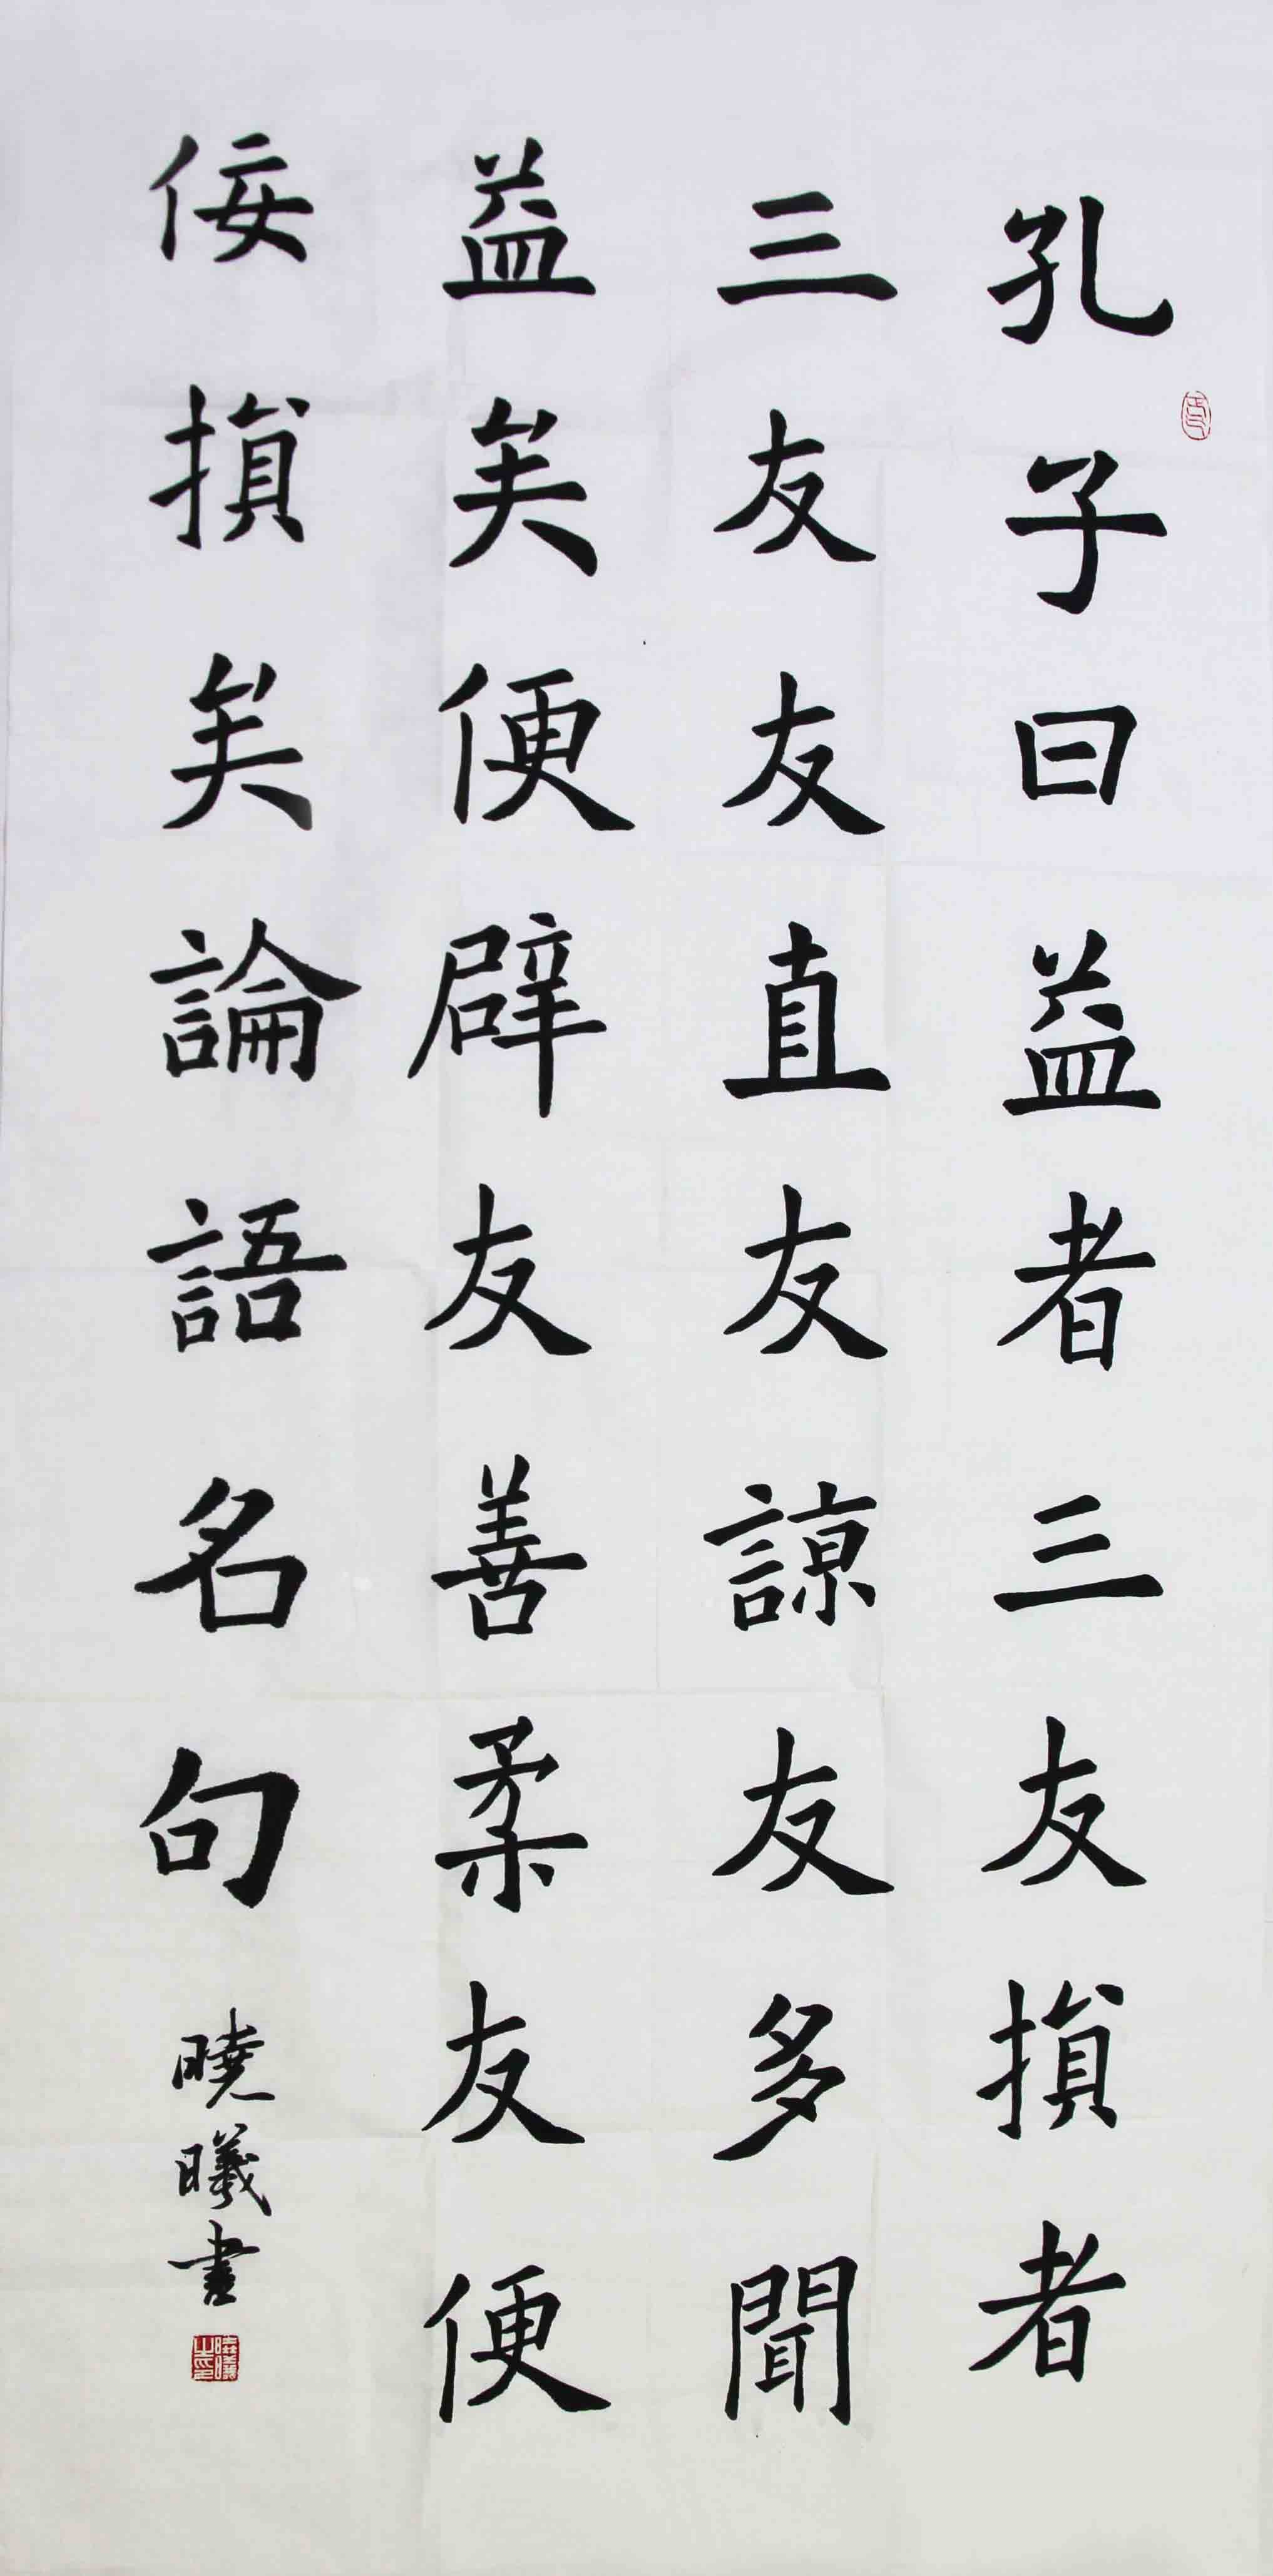 孔子曰益者三友損者
三友友直友諒友多聞
益矣便辟友善柔友便
佞損矣論語名句
曉曦書